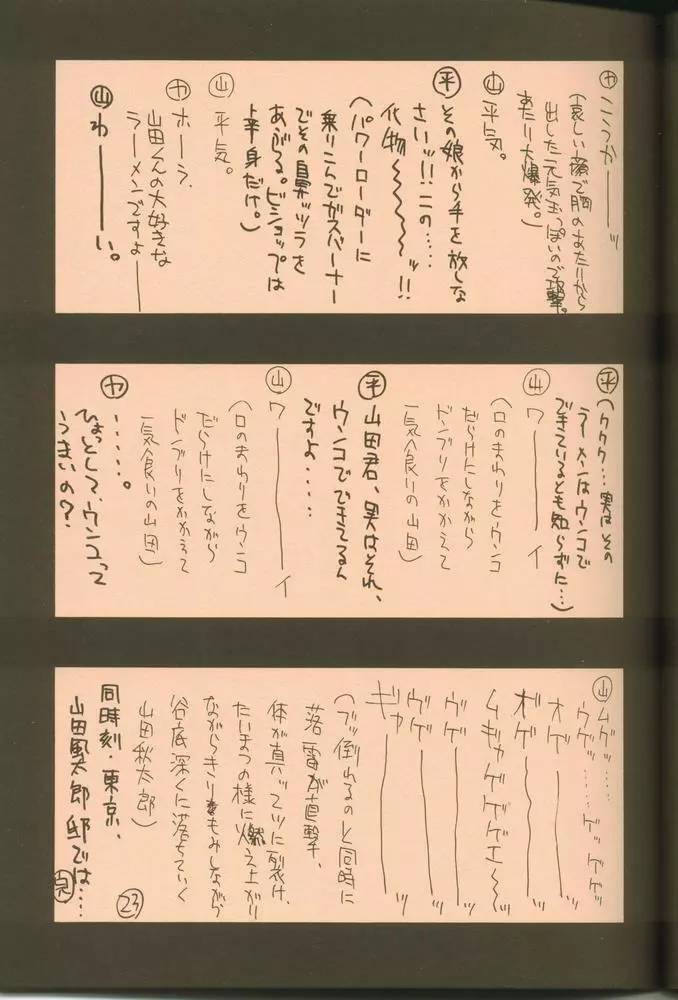 ヤ
こゝかーーーッ
(哀しい顔で胸のあたりから
出した元気玉っぽいので攻撃。
あたり大爆発。)
山
平気。
平
その娘から手を放しな
さいッ!!この……
化物〜〜〜〜ッ!!
(パワーローダーに
乗りこんでガスバーナー
でその鼻ッツラを
あぶる。ビショップは
上半身だけ。)
山
平気。
ヤ
ホーラ、
山田くんの大好きな
ラーメンですよーー
山
わーーーい。
平
(ククク…実はその
ラーメンはウンコで
できているとも知らずに…)
山
ワーーーイ
(口のまわりをウンコ
だらけにしながら
ドンブリをかかえて
一気食いの山田)
平
山田君、実はそれ、
ウンコでできてるん
ですよ……
山
ワーーーイ
(口のまわりをウンコ
だらけにしながら
ドンブリをかかえて
一気食いの山田)
ヤ
……。
ひょっとして、ウンコって
うまいの?
山
ムゲッ……
ウゲッ……ゲッゲゲッ
オゲーーーッ
オゲーーーッ
ムギャゲゲゲエ〜〜ッ
ウゲーーーッ
ウゲーーーッ
ギャーーーッ
(ブッ倒れるのと同時に
落雷が直撃、
体が真ッ二つに裂け、
たいまつの様に燃え上がり
ながらきりもみしながら
谷底深くに落ちていく
山田秋太郎)
同時刻・東京、
山田風太郎邸では…
完
23